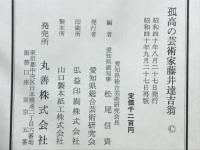 孤高の芸術家藤井達吉翁 ©
昭和四十年八月二十七日発行
昭和四十年九月二十七日再版
定価千二百円
愛知県総合芸術研究会長
愛知県副知事
編者 松尾信資
発行者 愛知県総合芸術研究会
印刷所 弘益印刷株式会社
製本所 山口製本紙工株式会社
発売所 丸善株式会社
東京都中央区日本橋通二丁目六番地
振替口座 東京 五番